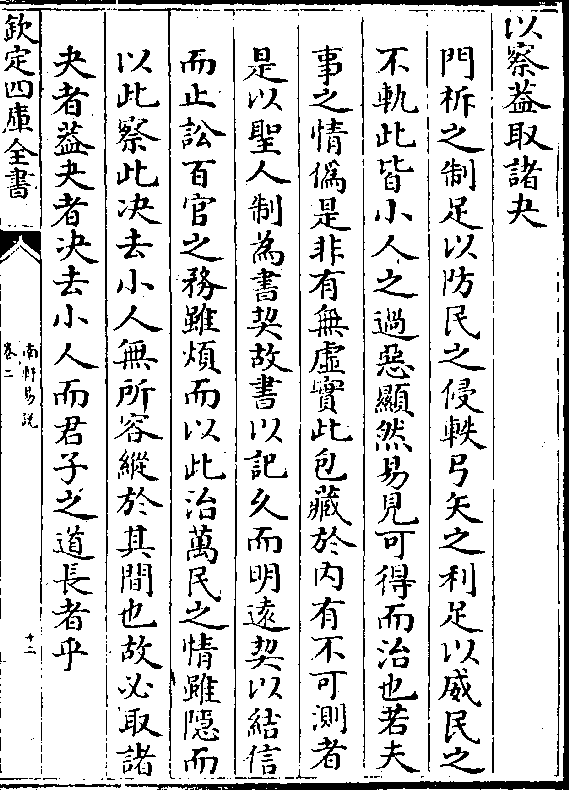 以察葢取諸夬
門柝之制足以防民之侵軼弓矢之利足以威民之
不軌此皆小人之過惡顯然易見可得而治也若夫
事之情僞是非有無虛實此包藏於内有不可測者
是以聖人制為書契故書以記久而明遠契以結信
而止訟百官之務雖煩而以此治萬民之情雖隱而
以此察此決去小人無所容縱於其間也故必取諸
夬者葢夬者决去小人而君子之道長者乎
欽定四庫全書
南軒易説
卷二
十二